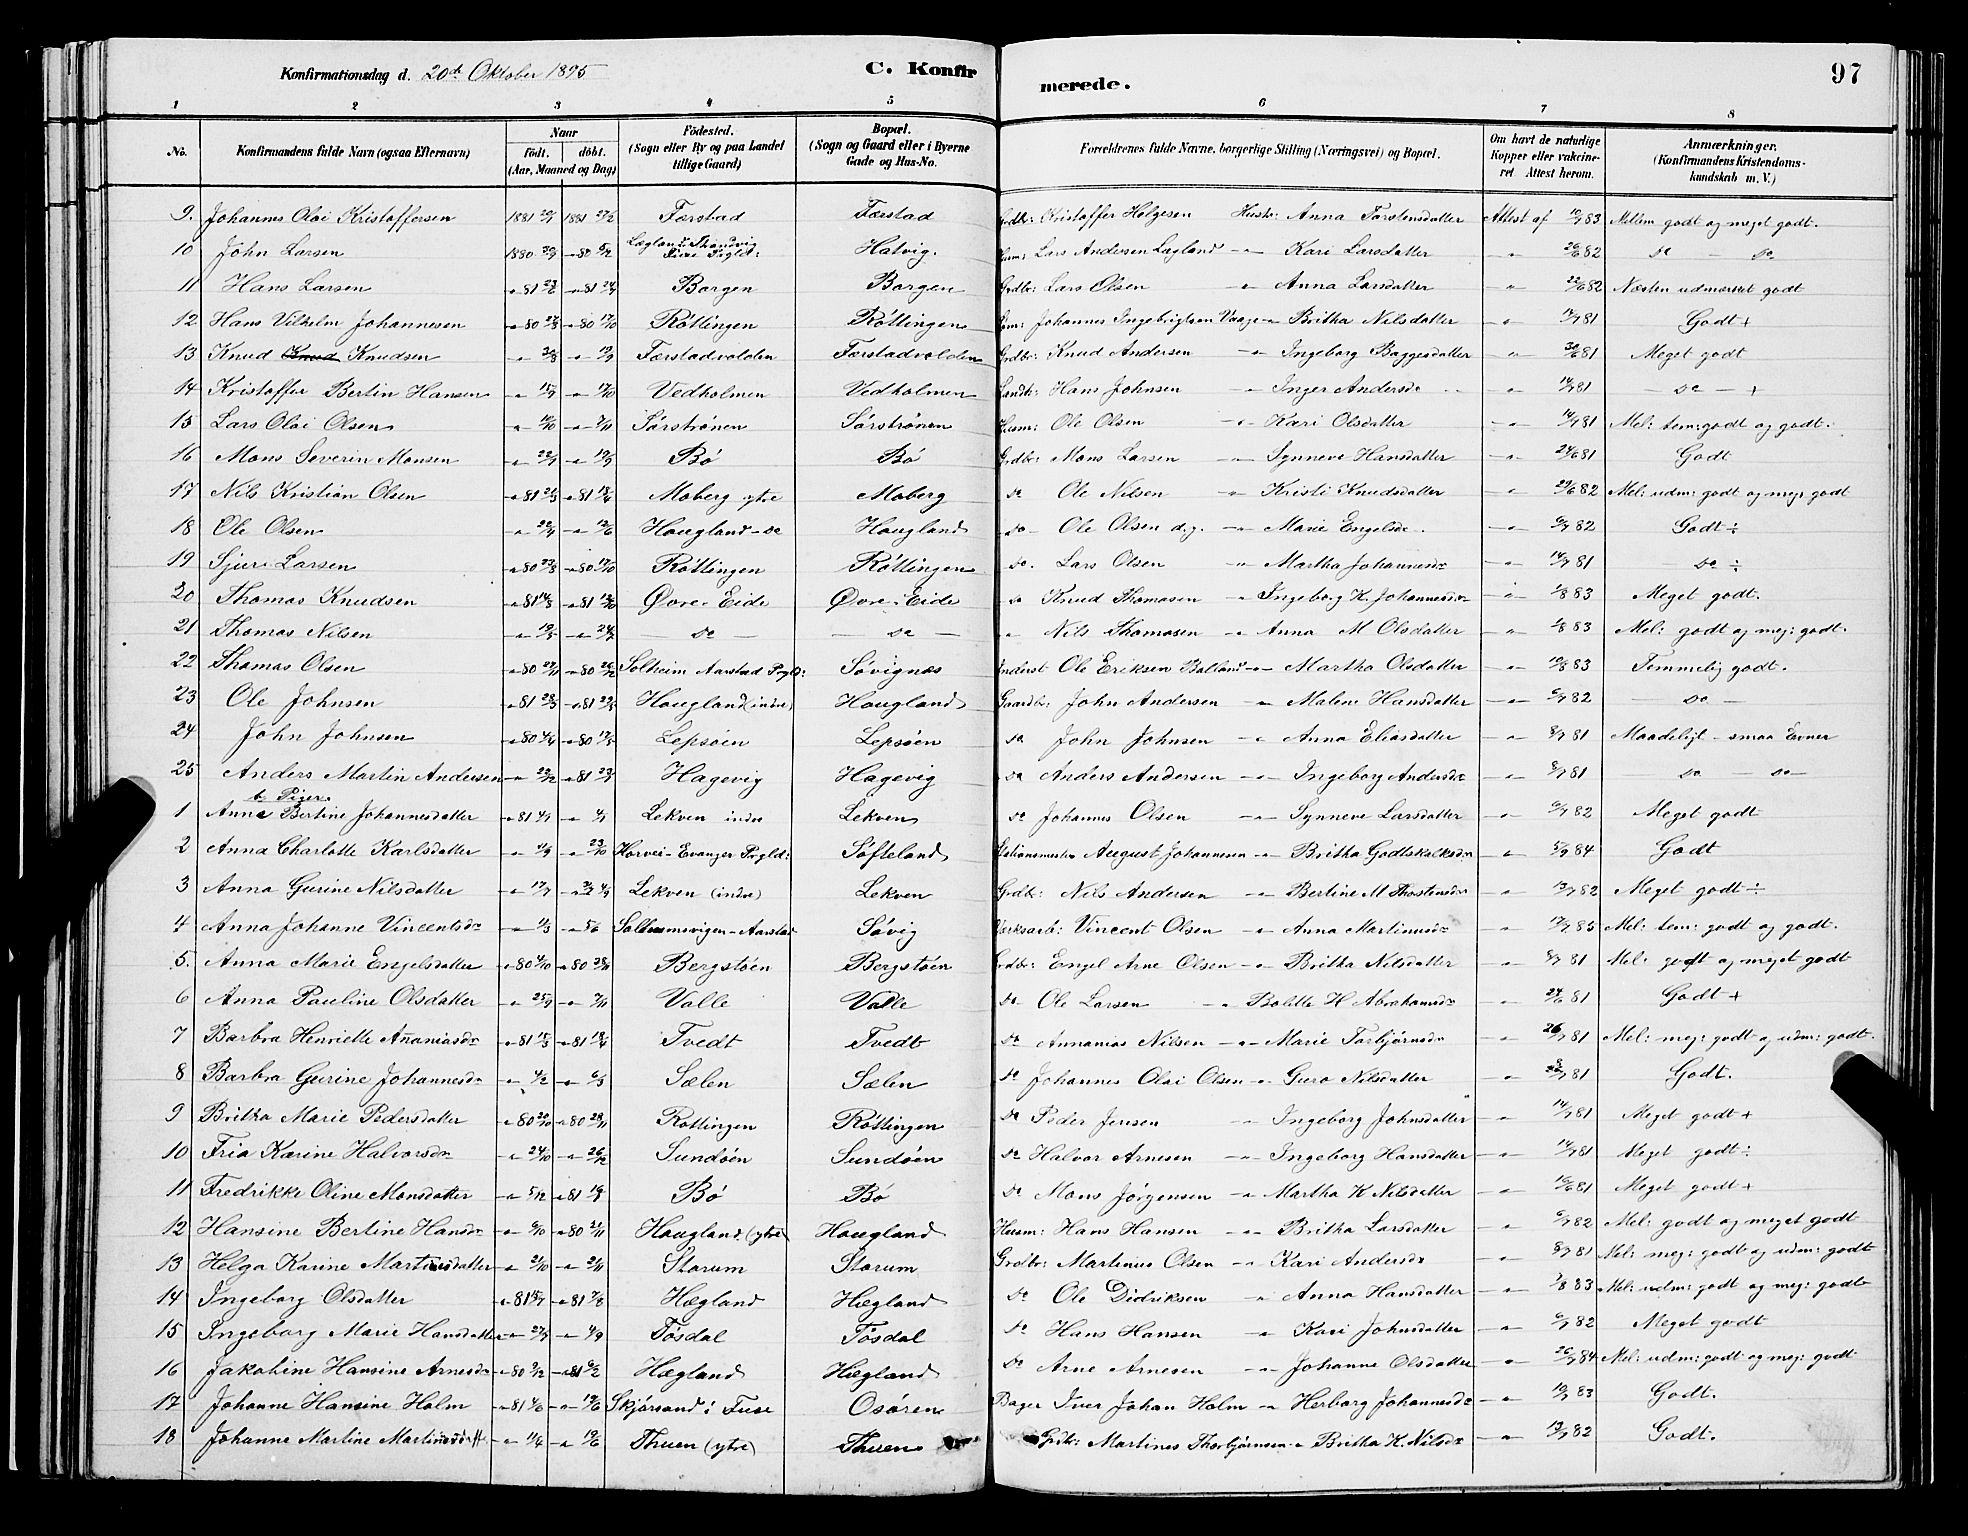 Konfirmationsdag d. 20de Oktober 1895 C. Konfirmerede. 97
1 2 3 4 5 6 7 8
No. Konfirmandens fulde Navn (ogsaa Efternavn) Naar født. døbt. (Aar, Maaned og Dag) Fødested. (Sogn eller By og paa Landet tillige Gaard) Bopæl. (Sogn og Gaard eller i Byerne Gade og Hus-No. Forældrenes fulde Navne, borgerlige Stilling (Næringsvei) og Bopæl. Om havt de naturlige Kopper eller vakcineret Attest herom. Anmærkninger, (Konfirmandens Kristendomskundskab m. V.)
9. Johannes Olai Kristoffersen 1881 1881 27/2 Færstad Færstad Grdbr: Kristoffer Helgesen Hustr: Anna Torstensdatter Attest af 83 Mellem godt og meget godt.
10 John Larsen 1880 -"- 80 Lægland Strandvig Fuse Prgld: Hatvig. Husm: Lars Andersen Lægland -"- Kari Larsdatter -"- 82 do - do
11 Hans Larsen -"- 81 -"- 81 Borgen Borgen Grdbr: Lars Olsen -"- Anna Larsdatter " 82 Næsten udmærket godt
12 Hans Vilhelm Johannesen -"- 80 -"- 80 17/10 Røttingen Røttingen Johannes Ingebrigtsen Vaage -"- Britha Nilsdatter -"- 81 Godt +
13 Knud Knud Knudsen -"- -"- Færstadvolden Færstadvolden Grdbr: Knud Andersen -"- Ingeborg Baggesdatter " 81 Meget godt
14 Kristoffer Bertin Hansen -"- -"- 17/10 Vedholmen Vedholmen Hans Johnsen -"- Inger Andersdr -"- 81 - do - +
15 Lars Olai Olsen " -"- 7/11 Sørstrønen Sørstrønen Husm: Ole Olsen -"- Kari Olsdatter -"- 81 Mel: tem: godt og godt.
16 Mons Severin Monsen -"- -"- Bø Bø Grdbr: Mons Larsen -"- Synneve Hansdatter -"- 81 Godt
17 Nils Kristian Olsen -"- 81 -"- 81 18/4 Moberg ytre Moberg do Ole Nilsen -"- Kristi Knudsdatter -"- 82 Mel: udm: godt og mej: godt
18 Ole Olsen -"- -"- Hougland - do Hougland do Ole Olsen d.y. -"- Marie Engelsdr. -"- 82 Godt ÷
19 Sjur Larsen -"- 80 -"- 80 17/10 Røttingen Røttingen do. Lars Olsen " Martha Johannesdr -"- 81 do ÷
20 Thomas Knudsen -"- 81 -"- 81 Øvre-Eide Øvre-Eide do Knud Thomasen -"- Ingeborg K. Johannesdr -"- 83 Meget godt.
21 Thomas Nilsen -"- -"- - do - - do - " Nils Thomasen -"- Anna M Olsdatter -"- 83 Mel: godt og mej: godt.
22 Thomas Olsen -"- 80 -"- 80 26/12 Solheim Aarstad Prgld: Søvignæs Ole Eriksen -"- Martha Olsdatter -"- 83 Temmelig godt.
23 Ole Johnsen -"- 81 -"- 81 Hougland (indre) Hougland Gaardbr: John Andersen -"- Malene Hansdatter -"- 82 - do -
24 John Johnsen -"- 80 -"- 80 Lepsøen Lepsøen do John Johnsen -"- Anna Eliasdatter -"- 81 Maadeligt - smaa Evner
25 Anders Martin Andersen -"- -"- 81 Hagevig Hagevig do Anders Andersen -"- Ingeborg Andersdr -"- 81 do - do -
b. Piger.
1 Anna Bertine Johannesdatter -"- 81 -"- Lekven indre Lekven do Johannes Olsen -"- Synneve Larsdatter -"- 82 Meget godt
2 Anna Charlotte Karlsdatter -"- -"- 23/10 Horvei - Evanger Prgld: Søfteland Stationsmester August Johannesen -"- Britha Godtskalksdr -"- 84 Godt
3 Anna Gurine Nilsdatter -"- -"- Lekven (indre) Lekven Grdbr: Nils Andersen -"- Bertine M Thostensdr -"- 82 Meget godt ÷
4 Anna Johanne Vincentsdr -"- -"- 5/6 Solheimsvigen - Aarstad Søvig Værksarb: Vincent Olsen -"- Anna Martinusdr -"- 85 Mel: tem: godt og godt.
5. Anna Marie Engelsdatter -"- 80 4/10 -"- 80 28/11 Bergstøen Bergstøen Grdbr: Engel Arne Olsen -"- Britha Nilsdatter -"- 81 Mel: godt og meget godt
6 Anna Pauline Olsdatter -"- -"- 7/11 Valle Valle do Ole Larsen -"- Bolette H Abrahamsdr -"- 81 Godt +
7 Barbra Henriette Ananiasdr -"- 81 -"- 81 Tvedt Tvedt do Annanias Nilsen -"- Marie Torbjørnsdr -"- 81 Mel: mej: godt og udm: godt.
8 Barbra Gurine Johannesdr -"- 4/2 -"- 6/3 Sælen Sælen do Johannes Olai Olsen -"- Guro Nilsdatter -"- 81 Godt.
9 Britha Marie Pedersdatter -"- 80 -"- 80 28/11 Røttingen Røttingen do Peder Jensen -"- Ingeborg Johnsdatter -"- 81 Meget godt +
10 Fria Karine Halvorsdr -"- 24/10 -"- 26/12 Sundøen Sundøen do Halvor Arnesen -"- Ingeborg Hansdatter -"- 81 Meget godt ÷
11 Fredrikke Oline Monsdatter -"- 5/12 -"- 81 Bø Bø do Mons Jørgensen -"- Martha K Nilsdatter -"- 81 Meget godt +
12 Hansine Bertine Hansdr -"- -"- 80 21/11 Hougland (ytre) Hougland Husm: Hans Hansen -"- Britha Larsdatter -"- 82 Mel: godt og meget godt
13 Helga Karine Martinusdatter -"- 21/10 -"- 21/11 Storum Storum Grdbr: Martinus Olsen -"- Kari Andersdr -"- 81 Mel: mej: godt og udm: godt
14 Ingeborg Olsdatter -"- 81 -"- 81 7/8 Hægland Hægland do Ole Didriksen -"- Anna Hansdatter -"- 83 Mel: udm: godt og mej: godt
15 Ingeborg Marie Hansdatter -"- -"- 4/9 Tøsdal Tøsdal do Hans Hansen -"- Kari Johnsdatter -"- 82 Meget godt
16 Jakobine Hansine Arnesdr -"- 80 -"- 81 6/2 Hægland Hægland do Arne Arnesen -"- Johanne Olsdatter -"- 84 Mel: udm: godt og mej: godt
17 Johanne Hansine Holm -"- 81 -"- Skjørsand i Fuse Osøren Bager Iver Johan Holm -"- Herborg Johannesdr -"- 83 Godt.
18 Johanne Martine -"- 11/4 -"- 19/6 Thuen (ytre) Thuen Grdbr: Martines Thorbjørnsen -"- Britha K. Nilsdr -"- 82 Godt.